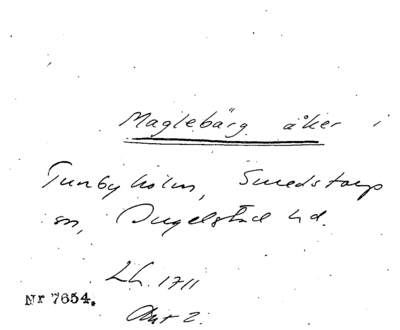 Maglebärg åker i
Tunbyholm, Smedstorp
sn, Ingelstad hd.
Lh. 1711
Akt 2.
Nr 7654.